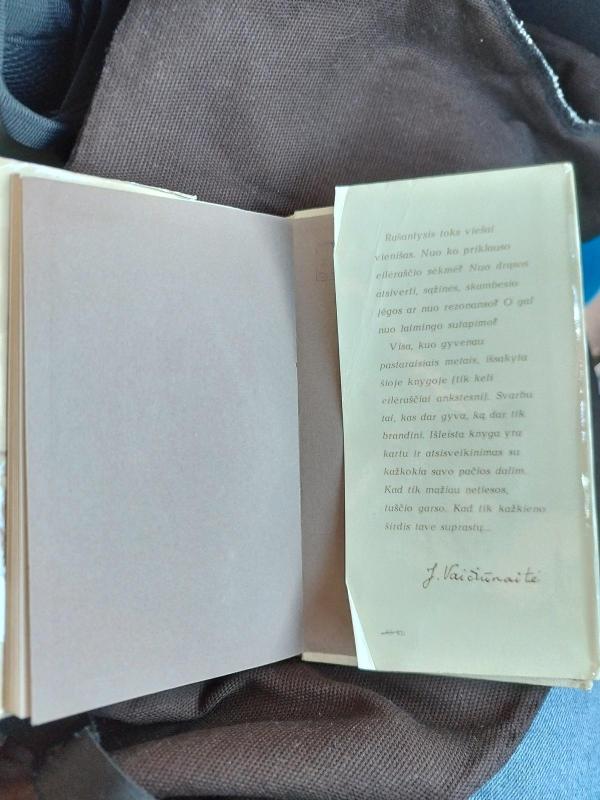 Rašantysis toks viešai
vienišas. Nuo ko priklauso
eilėraščio sėkmė? Nuo drąsos
atsiverti, sąžinės, skambesio
jėgos ar nuo rezonanso? O gal
nuo laimingo sutapimo?
Visa, kuo gyvenau
pastaraisiais metais, išsakyta
šioje knygoje (tik keli
eilėraščiai ankstesni). Svarbu
tai, kas dar gyva, ką dar tik
brandini. Išleista knyga yra
kartu ir atsisveikinimas su
kažkokia savo pačios dalim.
Kad tik mažiau netiesos,
tuščio garso. Kad tik kažkieno
širdis tave suprastų...
J. Vaičiūnaitė